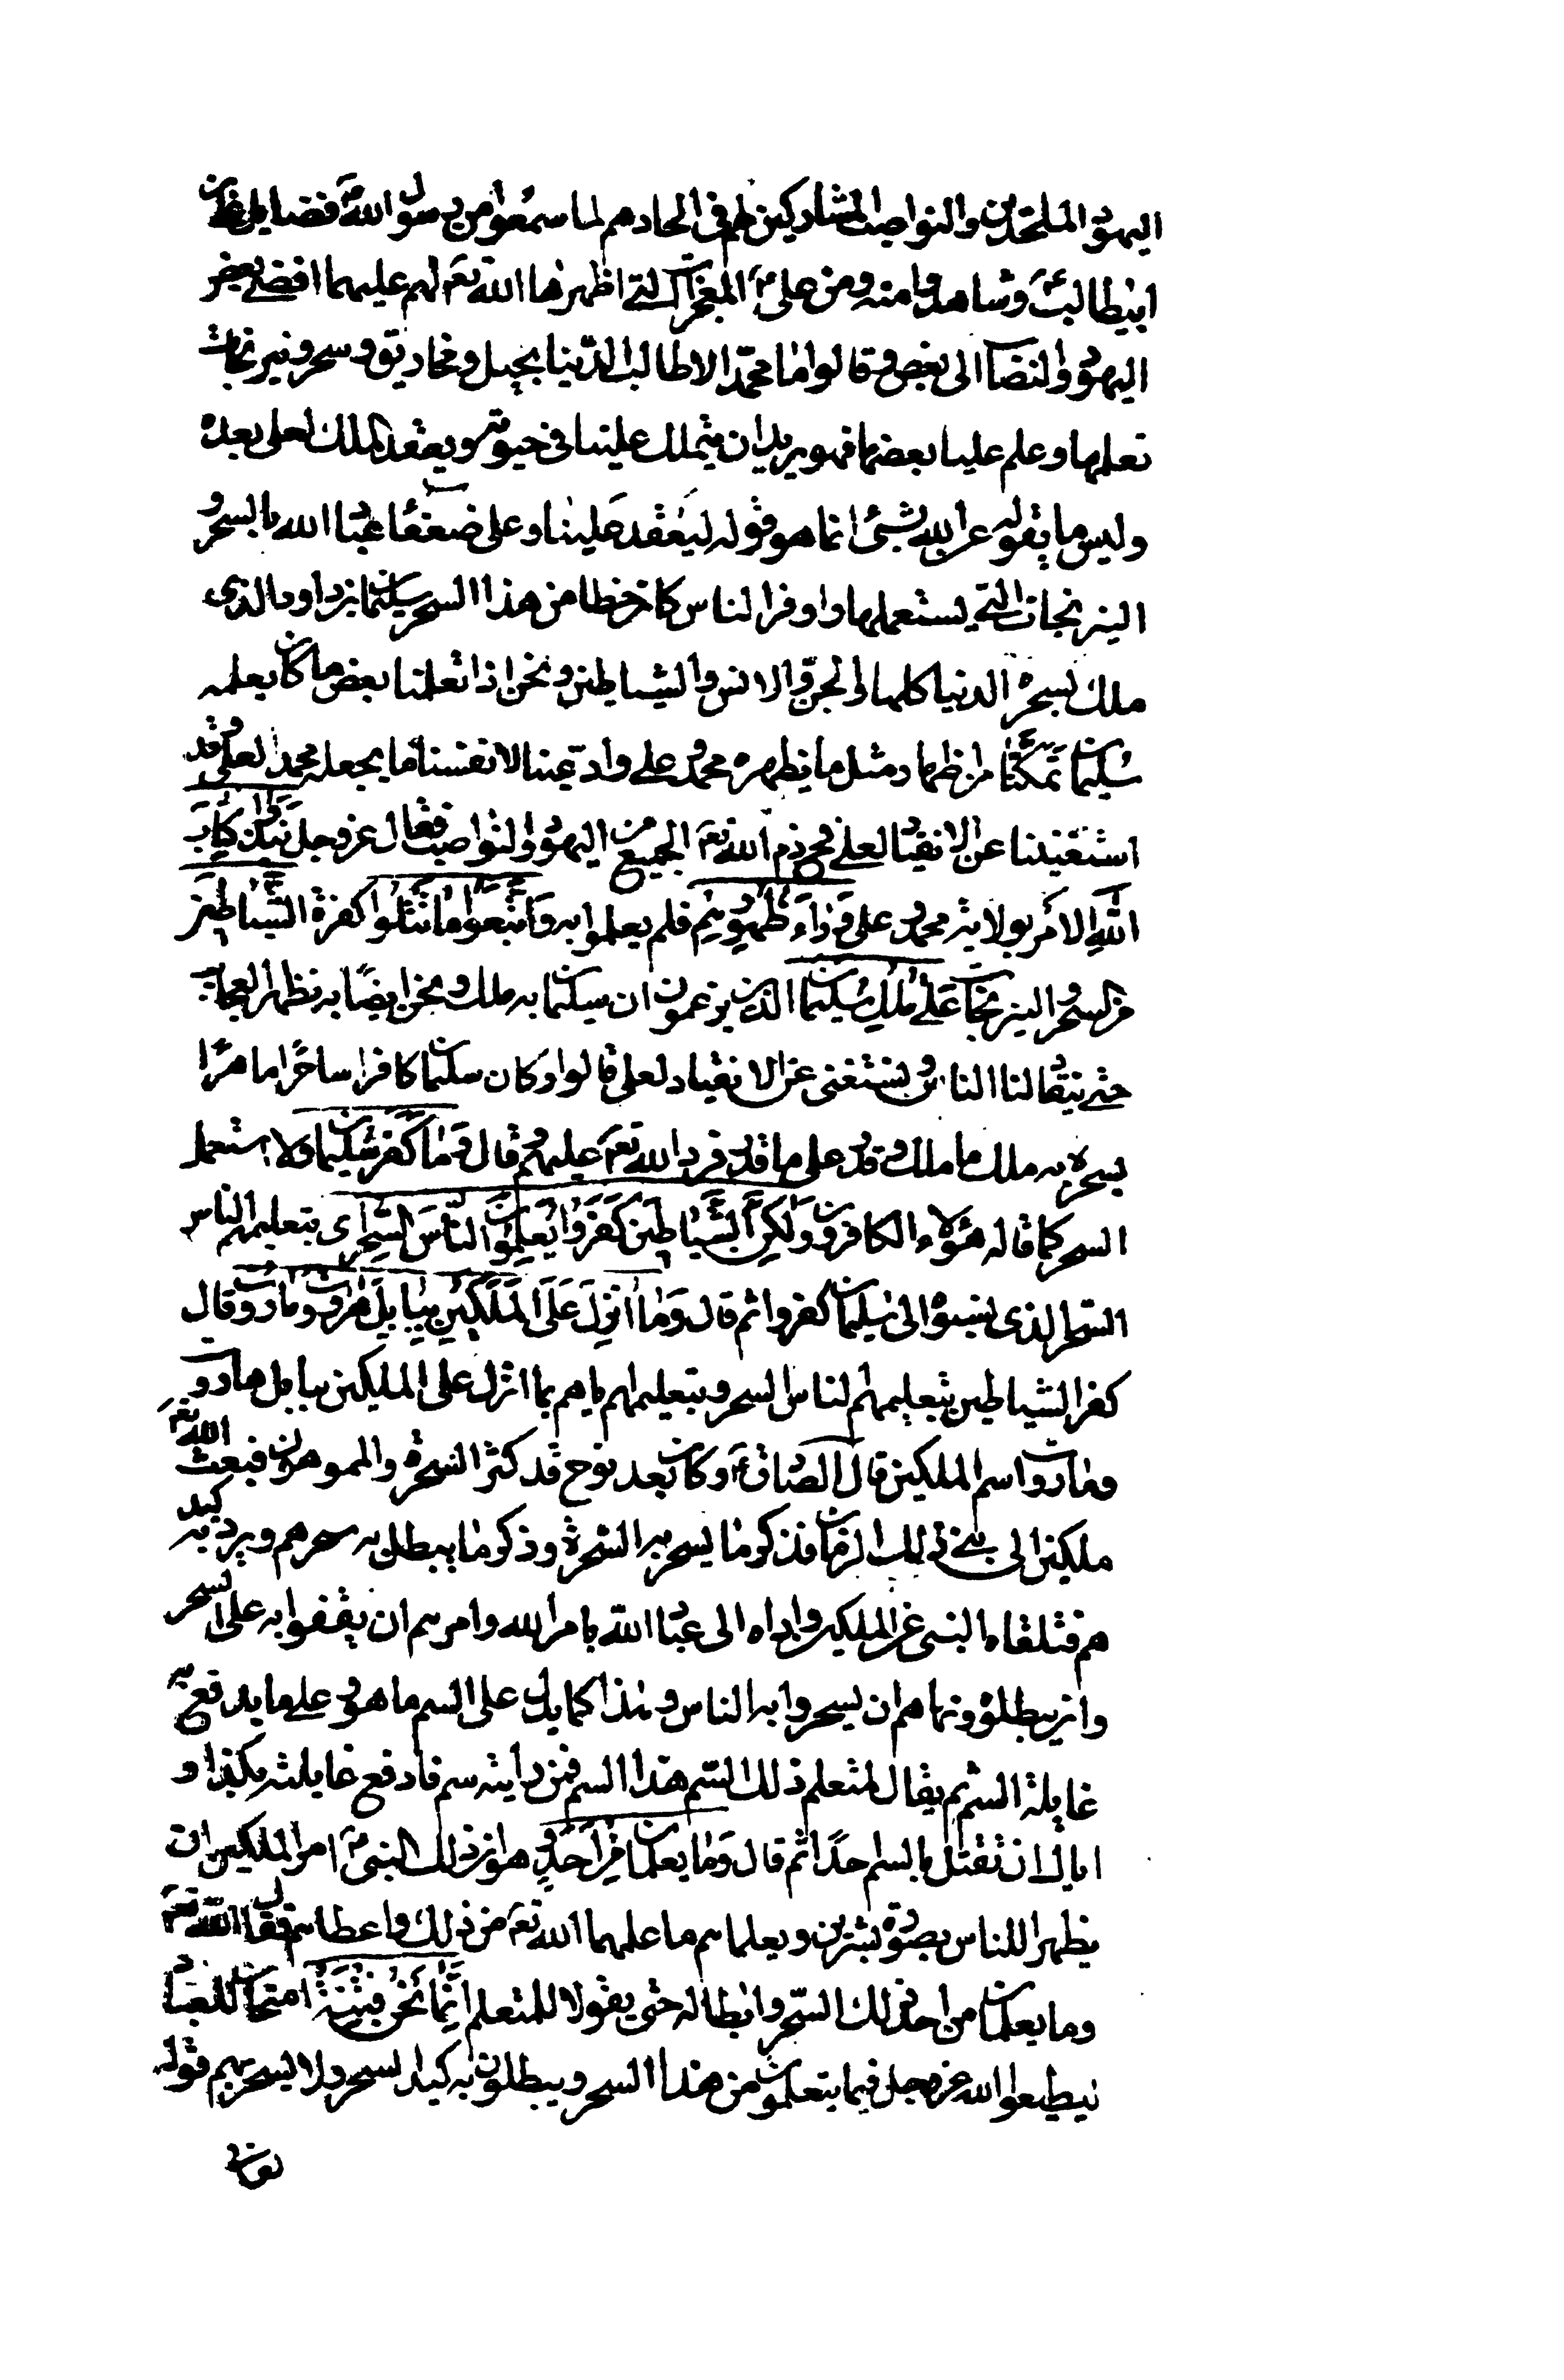 اليهود الملحدين والنواصب المشاركين لهم في الحادهم لما سمعوا من رسول الله ص فضايل علي بن
ابيطالب ع وشاهدوا منه ومن علي ع المعجزات التي اظهرها الله تع لهم عليهما افضى بعض
اليهود والنصا الى بعض وقالوا ما محمد الا طالب الدنيا بحيل ومخاريق وسحر ونيرنجات
تعلمها وعلم عليا بعضها فهو يريد ان يتملك علينا في حيوته ويعقد الملك لعلي بعده
وليس ما يقوله عن الله بشئ انما هو قوله ليعقد علينا وعلى ضعفا عباد الله بالسحر و
النيرنجات التي يستعملها واوفر الناس كان حظا من هذا السحر سليمان بن داود الذي
ملك بسحره الدنيا كلها والجن والانس والشياطين ونحن اذا تعلمنا بعض ما كان يعلمه
سليمان تمكنا من اظهار مثل ما يظهره محمد وعلي وادعينا لانفسنا ما يجعله محمد لعلي وقد
استغنينا عن الانقياد لعلي فح ذم الله تع الجميع من اليهود والنواصب فقال عز وجل نبذوا كتاب
الله الامر بولاية محمد وعلي وراء ظهورهم فلم يعملوا به واتبعوا ما تتلوا كفرة الشياطين
من السحر والنيرنجات على ملك سليمان الذين يزعمون ان سليمان به ملك ونحن ايضا به نظهر العجائب
حتى ينقاد لنا الناس ونستغني عن الانقياد لعلي قالوا وكان سليمان كافرا ساحرا ماهرا
بسحره به ملك ما ملك وقدر على ما قدر فرد الله تع عليهم وقال وما كفر سليمان ولا استعمل
السحر كما قاله هؤلاء الكافرون ولكن الشياطين كفروا يعلمون الناس السحر اى بتعليمهم الناس
السحر الذي نسبوه الى سليمان كفروا ثم قال وما انزل على الملكين ببابل هاروت وماروت وقال
كفر الشياطين بتعليمهم الناس السحر وبتعليمهم اياهم بما انزل على الملكين ببابل هاروت
وماروت اسم الملكين قال الصادق ع وكان بعد نوح قد كثر السحرة والمموهون فبعث الله تع
ملكين الى نبي ذلك الزمان فذكر ما يسحر به السحرة وذكر ما يبطل به سحرهم ويرد به كيد
هم فتلقاه النبي عن الملكين واداه الى عباد الله بامر الله وامرهم ان يقفوا به على السحر
وان يبطلوه ونهاهم ان يسحروا به الناس وهذا كما يدل على السم ما هو وعلى ما يدفع به
غايلة السم ثم يقال لمتعلم ذلك السم هذا السم فمن رايته سم فادفع غايلته بكذا و
اياك ان تقتل بالسم احدا ثم قال وما يعلمان من احد وهو ان ذلك النبي ع امر الملكين ان
يظهرا للناس بصورة بشرين ويعلماهم ما علمهما الله تع من ذلك واعظاهم فقال الله تع
وما يعلمان من احد ذلك السحر وابطاله حتى يقولا للمتعلم انما نحن فتنة امتحان للعباد
ليطيعوا الله عز وجل فيما يتعلمون من هذا السحر ويبطلون به كيد السحر ولا يسحر بهم قوله